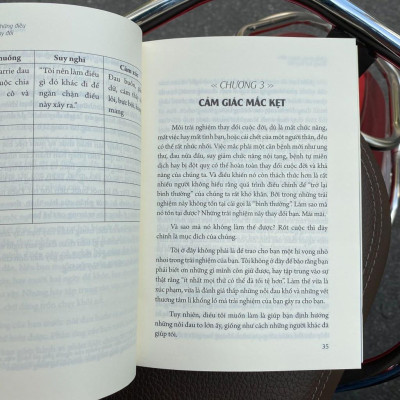 những điều
y đổi
huống
Suy nghĩ
Cảm xú
arrie đau
"Tôi nên làm điều
Đau buồn,
uộc chia
gì đó khác đi để
dữ, cảm thấ
cô và
ngăn chặn điều
lỗi,
này xảy ra."
mang
CHƯƠNG 3
CẢM GIÁC MẮC KẸT
Mỗi trải nghiệm thay đổi cuộc đời, dù là mất chức năng,
mất việc hay mất tình bạn, hoặc cái chết của một người thân, đều
có thể rất nhức nhối. Việc mắc phải một căn bệnh mới như ung
thư, đau nửa đầu, suy giảm chức năng nội tạng, bệnh tự miễn
dịch hay bị đột quỵ có thể hoàn toàn thay đổi cuộc sống và khả
năng của chúng ta. Và điều khiến nó còn thách thức hơn là rất
nhiều người không hiểu rằng quá trình điều chỉnh để "trở lại
bình thường" của chúng ta rất khó khăn. Bởi trong những trải
nghiệm này không tồn tại cái gọi là "bình thường". Làm sao mà
nó tồn tại được? Những trải nghiệm này thay đổi bạn. Mãi mãi.
Và sao mà nó không làm thế được? Rốt cuộc thì đây
chính là mục đích của chúng.
Tôi ở đây không phải là để trao cho bạn một hi vọng nhỏ
nhoi trong trải nghiệm tồi tệ. Tôi không ở đây để bảo rằng bạn
phải biết ơn những gì mình còn giữ được, hay tập trung vào sự
thực rằng "ít nhất mọi thứ có thể đã tồi tệ hơn". Làm thế vừa là
xúc phạm, vừa là đánh giá thấp những nỗi đau khổ và những vết
thương tâm lí khổng lồ mà trải nghiệm của bạn gây ra cho bạn.
Tuy nhiên, điều tôi muốn làm là giúp bạn định hướng
những nỗi đau to lớn ấy, giống như cách những người khác đã
giúp tôi,
35